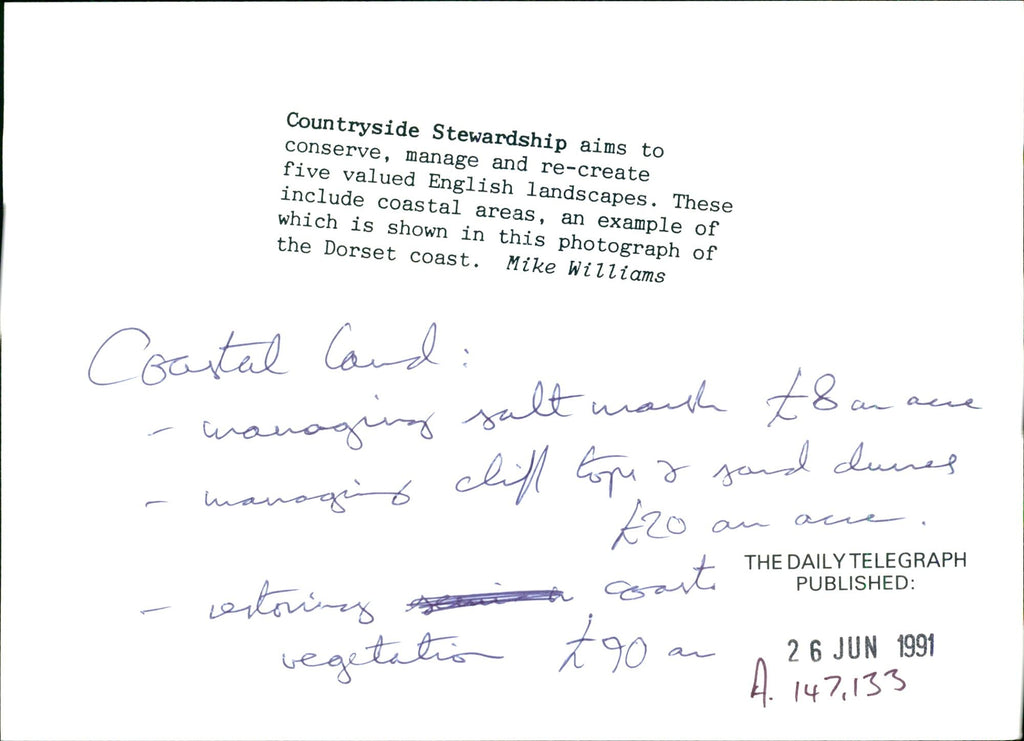 Countryside Stewardship aims to
conserve, manage and re-create
five valued English landscapes. These
include coastal areas, an example of
which is shown in this photograph of
the Dorset coast. Mike Williams
Coastal land:
- managing salt marsh £8 an acre
- managing cliff tops & sand dunes
£20 an acre.
- restoring coast
vegetation £90 an
THE DAILY TELEGRAPH
PUBLISHED:
26 JUN 1991
A. 147,133